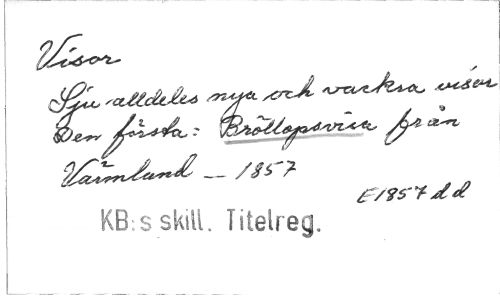 Visor
Sju alldeles nya och vackra visor
Den första: Bröllopsvisa från
Värmland — 1857
E1857 d d
KB:s skill. Titelreg.